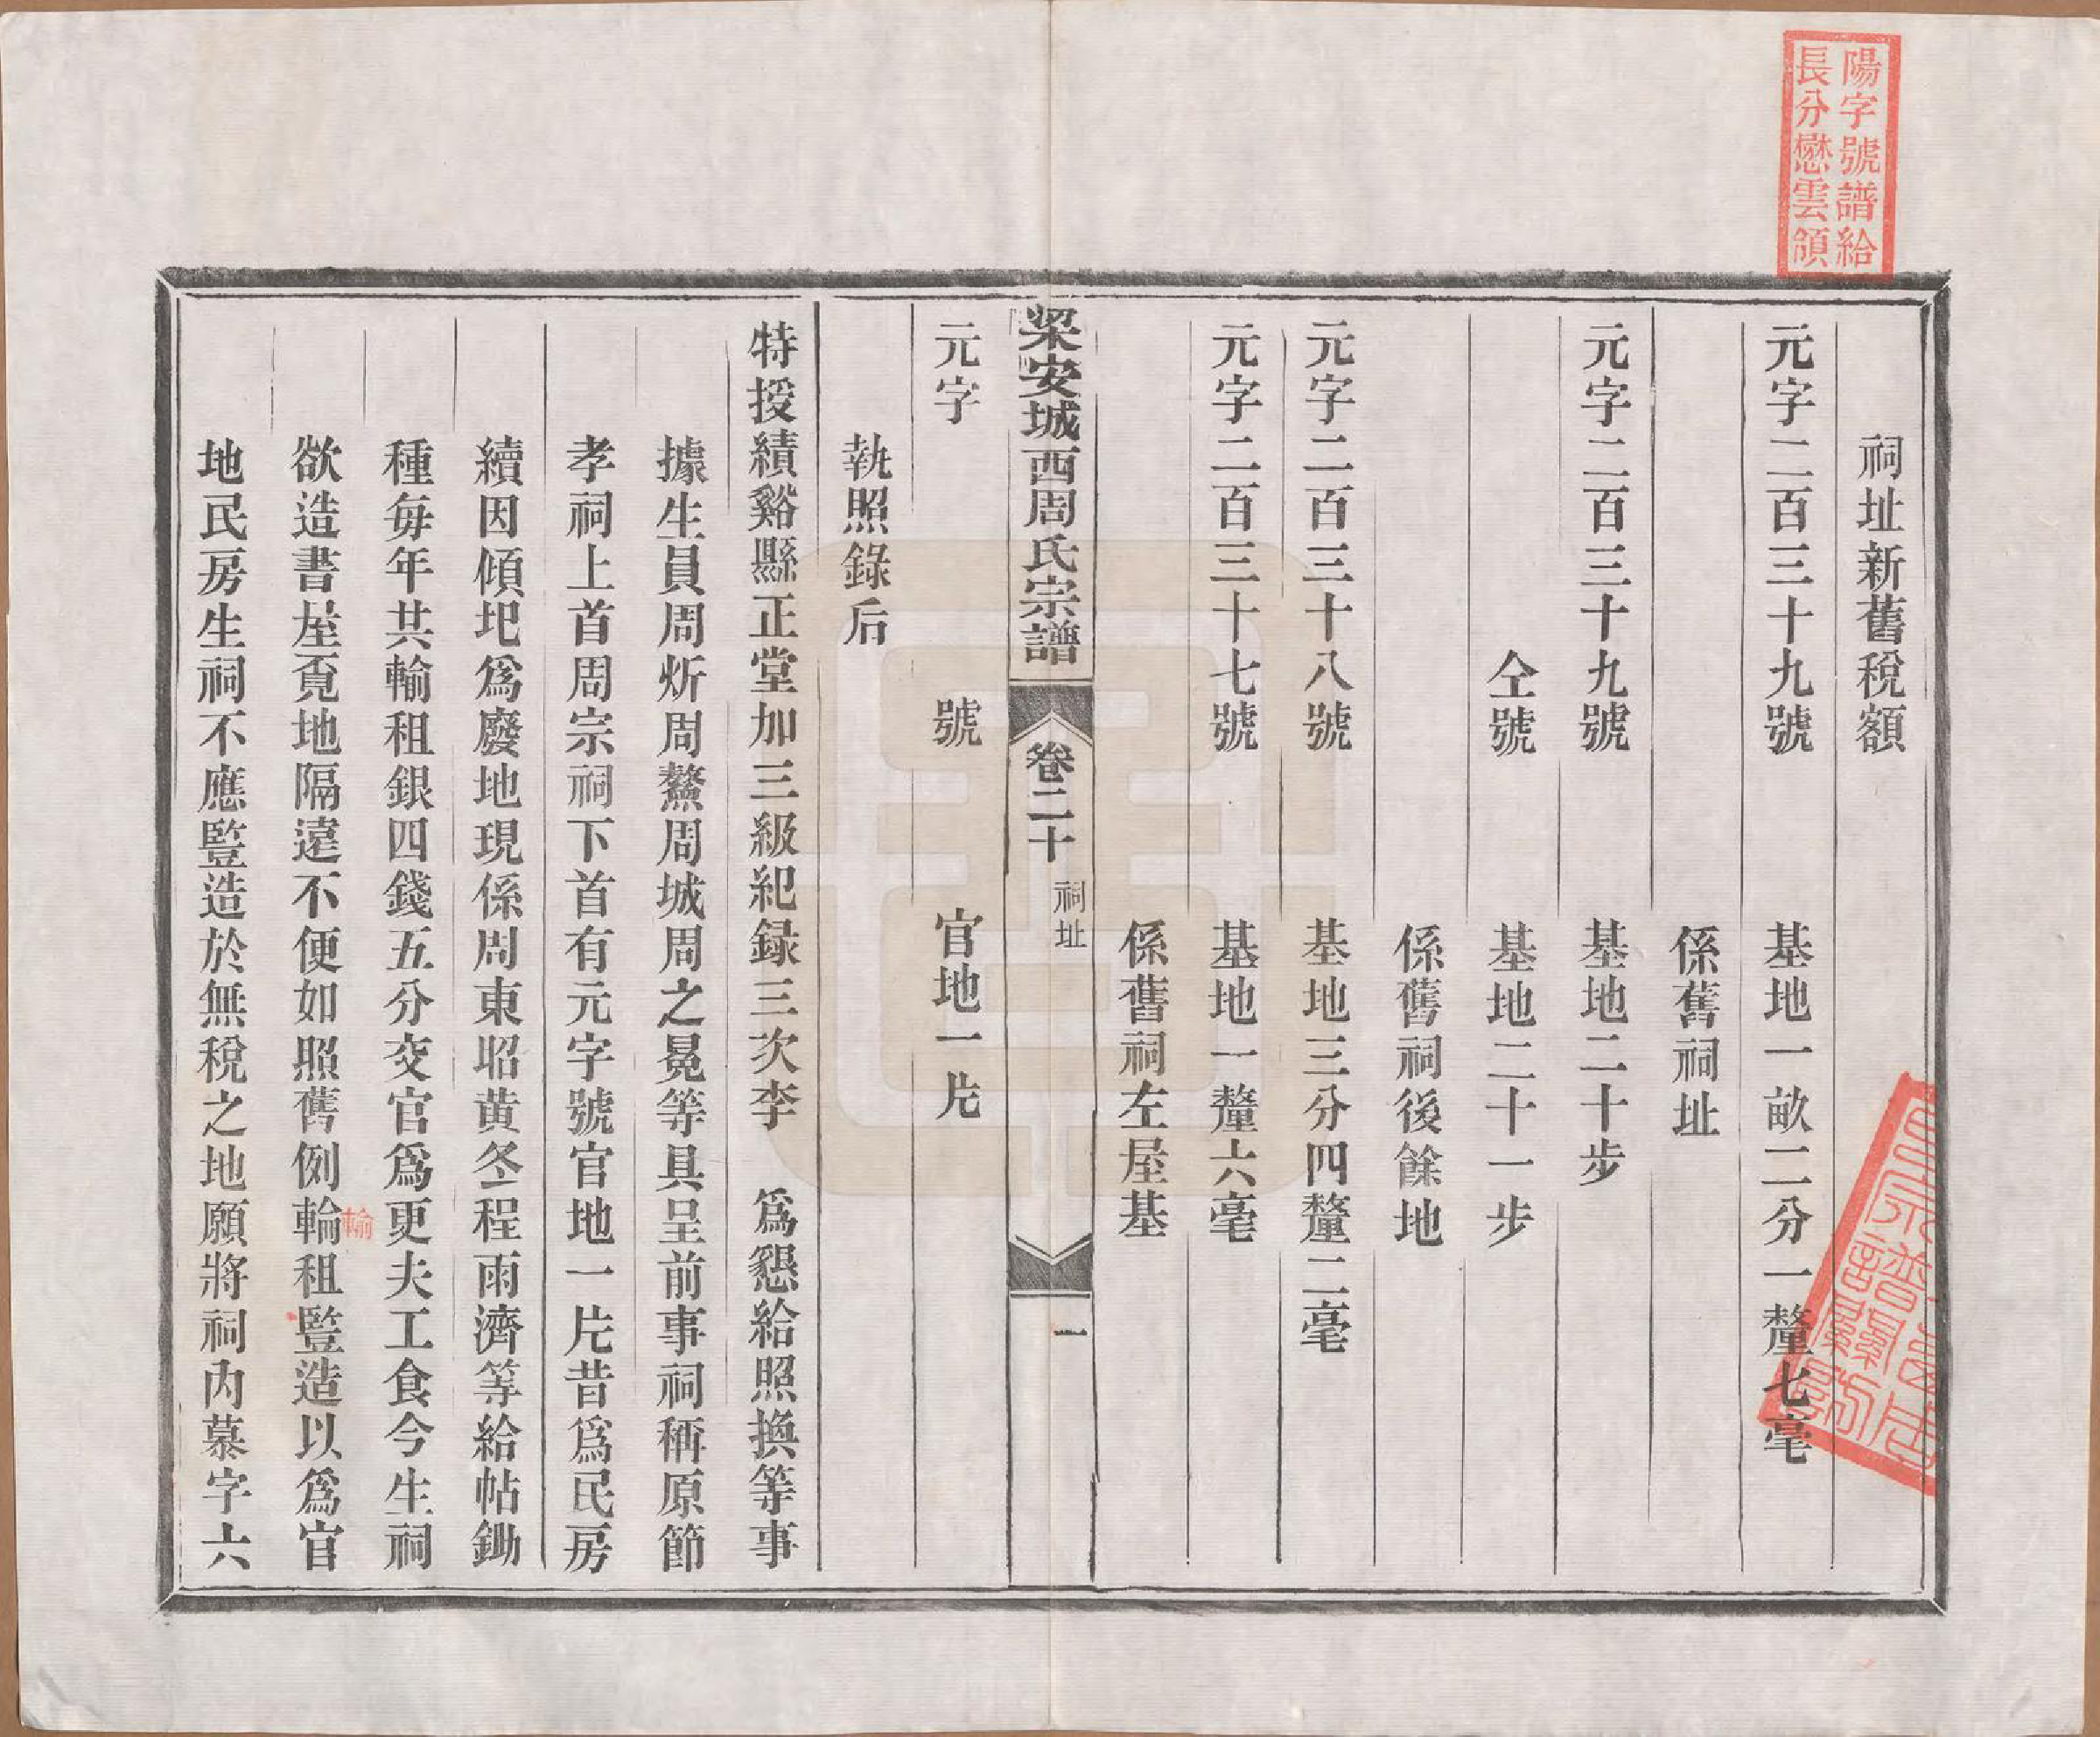 陽字號譜給
長分懋雲領
祠址新舊稅額
元字二百三十九號　基地一畝二分一釐七毫
係舊祠址
元字二百三十九號　基地二十步
仝號　基地二十一步
係舊祠後餘地
元字二百三十八號　基地三分四釐二毫
元字二百三十七號　基地一釐六毫
係舊祠左屋基
梁安城西周氏宗譜　卷二十　祠址　一
元字　號　官地一片
執照錄后
特授績谿縣正堂加三級紀録三次李　爲懇給照換等事
據生員周炘周鰲周城周之冕等具呈前事祠稱原節
孝祠上首周宗祠下首有元字號官地一片昔爲民房
續因傾圯爲廢地現係周東昭黄冬程雨濟等給帖鋤
種每年共輸租銀四錢五分交官爲更夫工食今生祠
輸
欲造書屋覔地隔遠不便如照舊例輪租監造以爲官
地民房生祠不應監造於無稅之地願將祠內慕字六